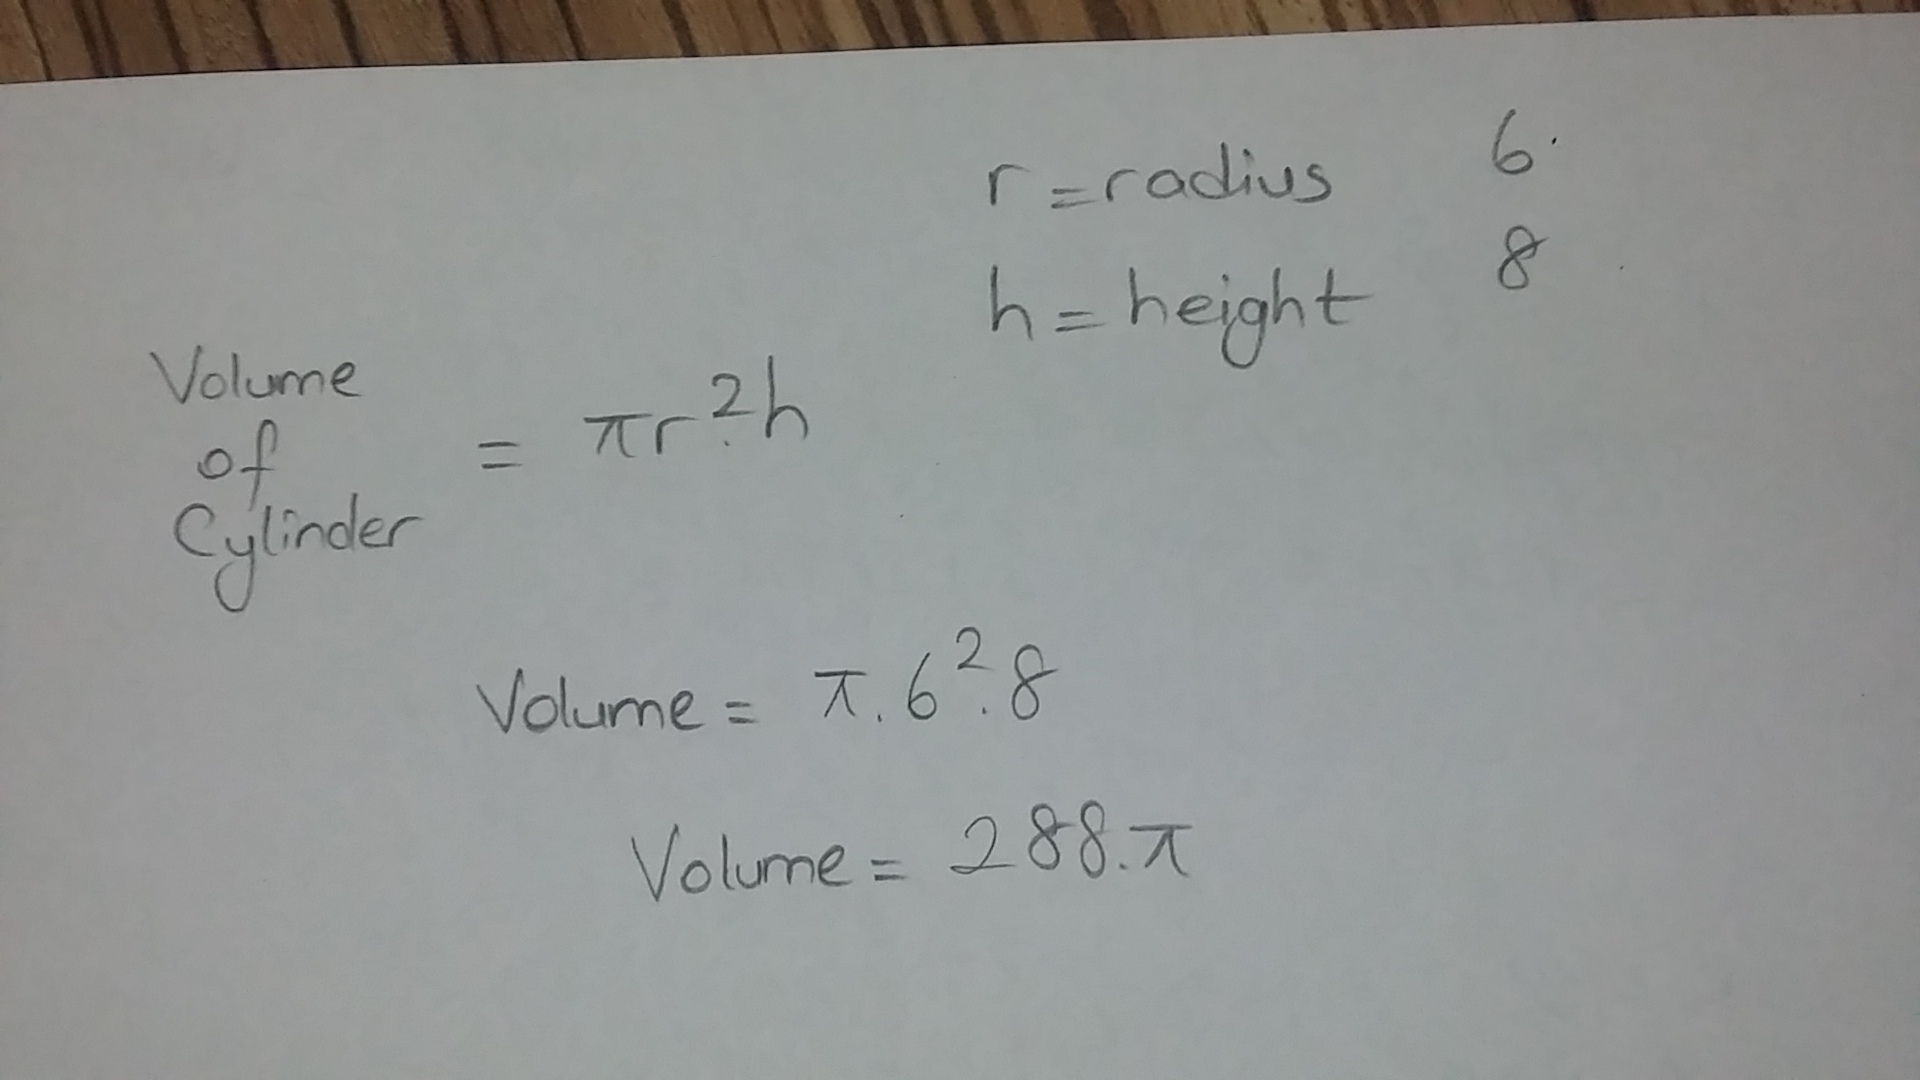 r = radius 6.
h = height 8
Volume
of
Cylinder
= πr².h
Volume = π.6².8
Volume = 288.π